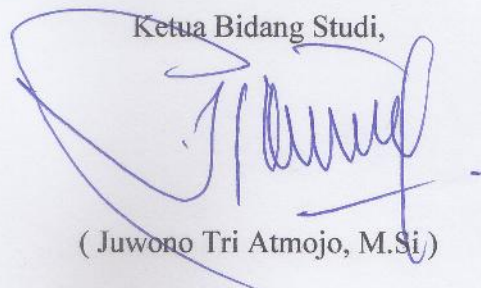 Ketua Bidang Studi,
( Juwono Tri Atmojo, M.Si )